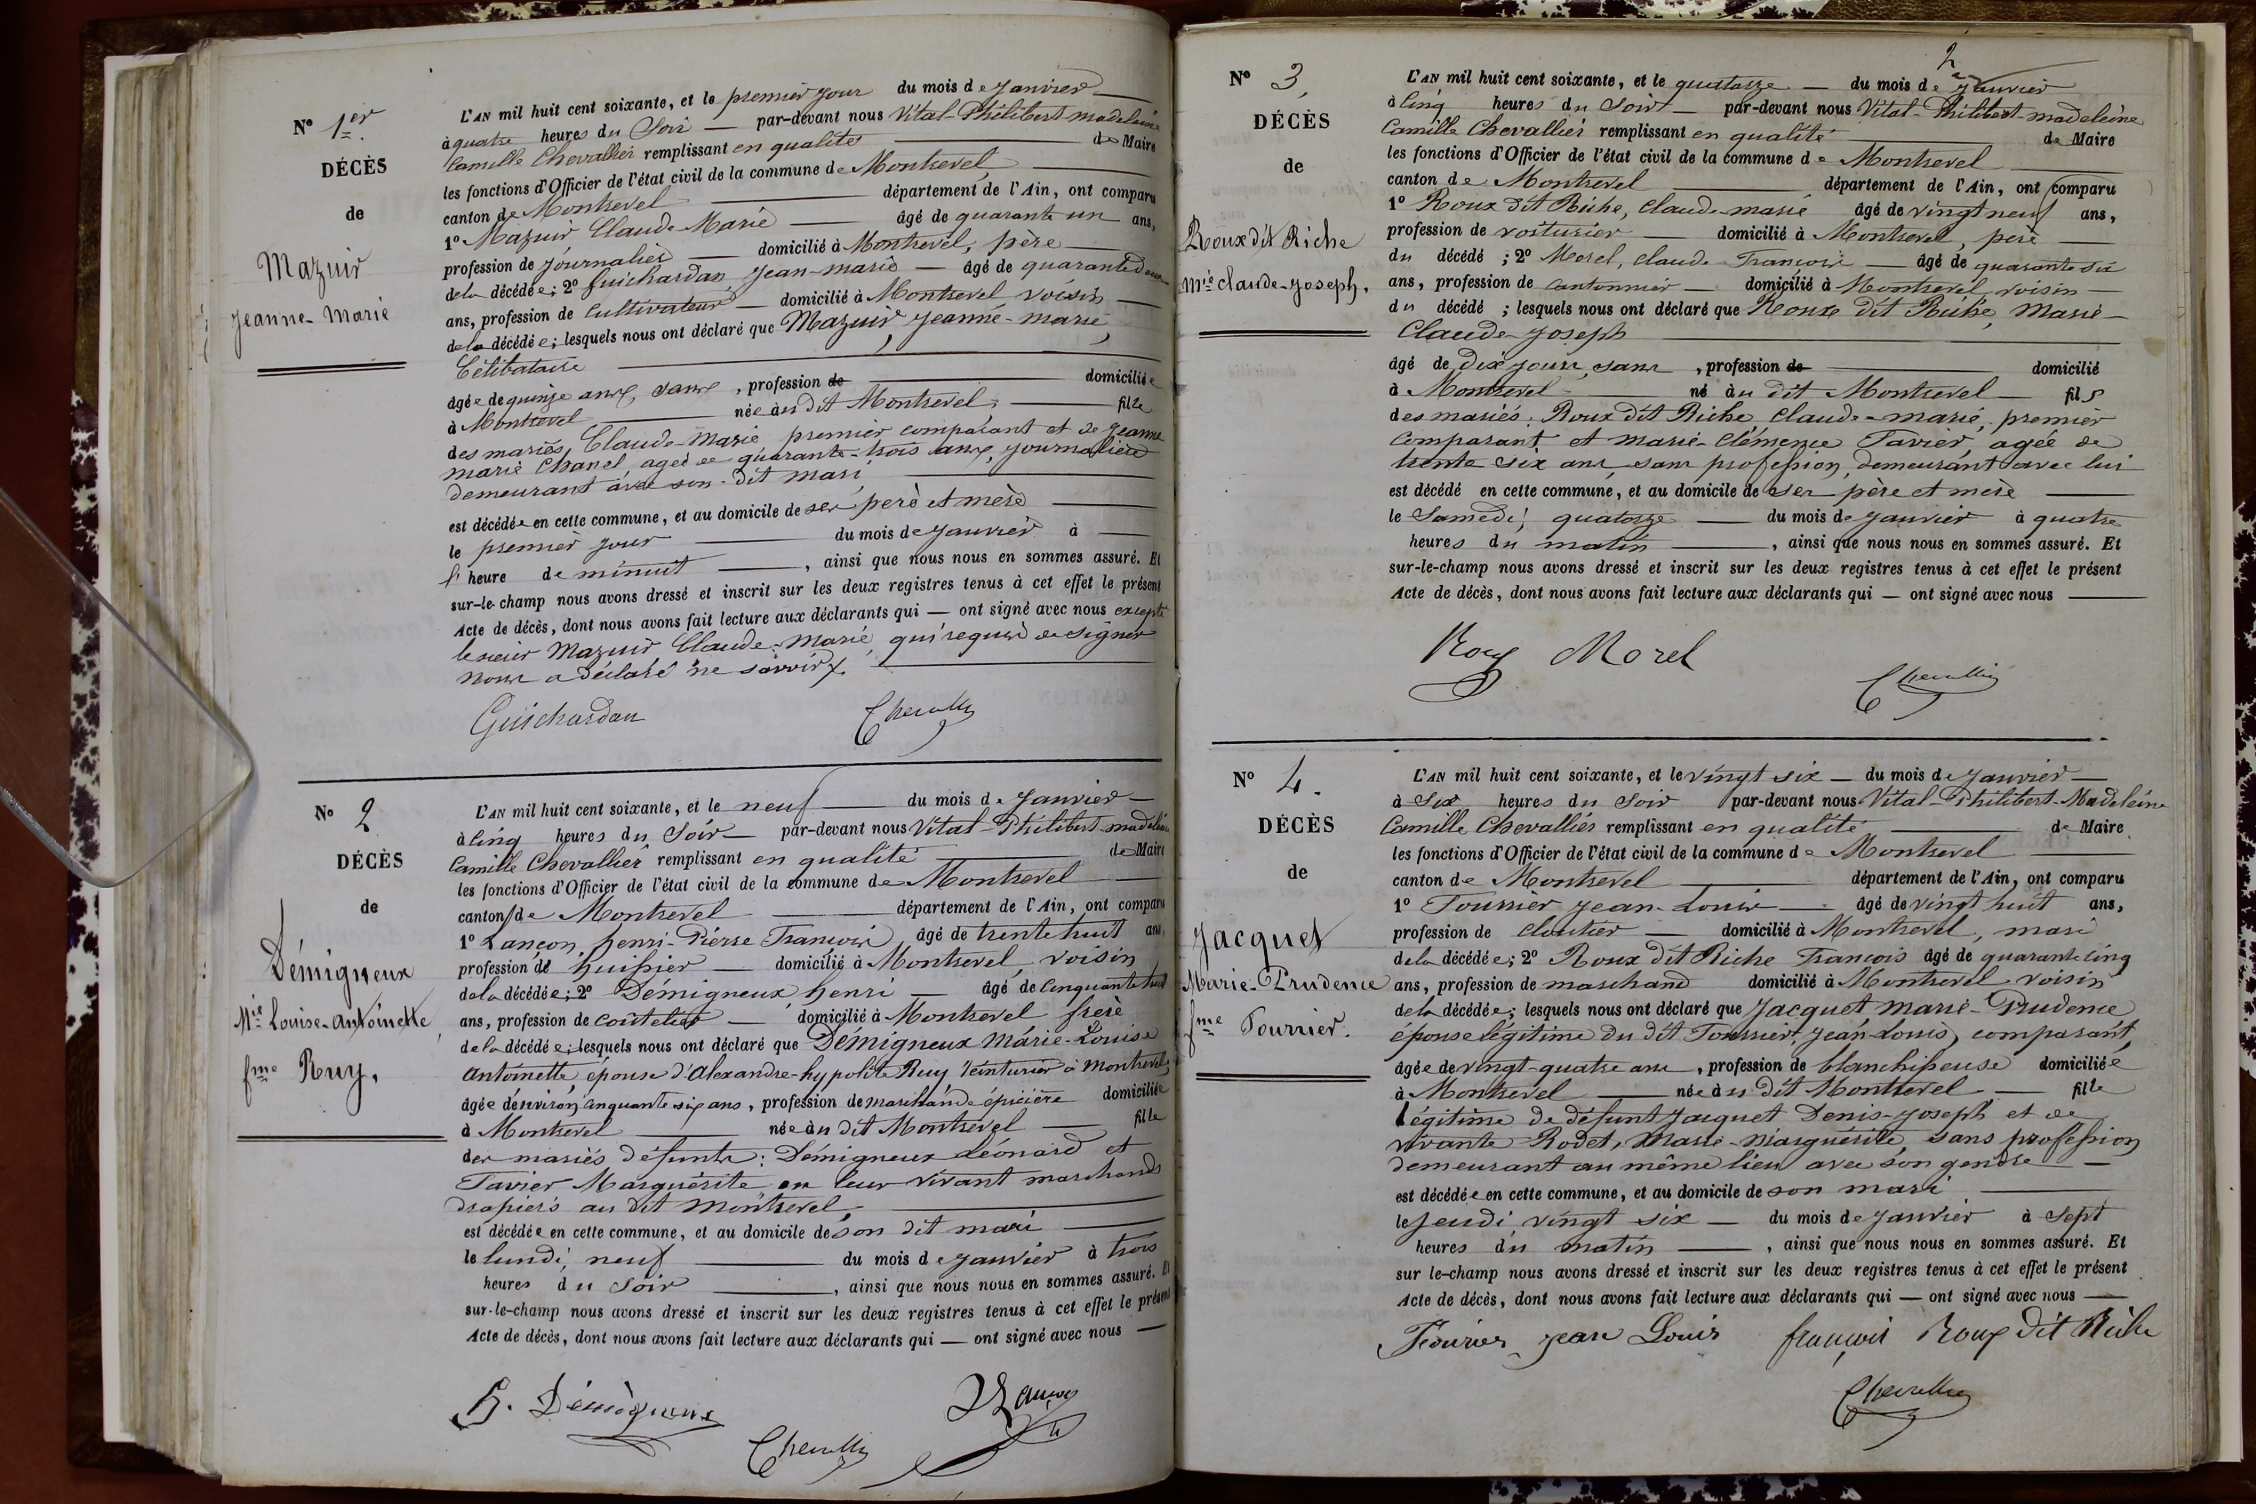 N° 1er
DÉCÈS
de
Mazuir
Jeanne-Marie
L'AN mil huit cent soixante, et le premier jour du mois de Janvier
à quatre heures du Soir par-devant nous Vital-Philibert-madeleine
Camille Chevallier remplissant en qualité de Maire
les fonctions d'Officier de l'état civil de la commune de Montrevel
canton de Montrevel département de l'Ain, ont comparu
1° Mazuir Claude-Marie âgé de quarante un ans,
profession de journalier domicilié à Montrevel, père
de la décédée; 2° Guichardan, Jean-marie âgé de quarante deux
ans, profession de Cultivateur domicilié à Montrevel voisin
de la décédée; lesquels nous ont déclaré que Mazuir Jeanne-marie,
Célibataire
âgée de quinze ans, sans, profession de domiciliée
à Montrevel née au dit Montrevel, fille
des mariés, Claude-Marie premier comparant et de Jeanne
marie Chanel, agée de quarante-trois ans, journalière
demeurant avec son dit mari,
est décédée en cette commune, et au domicile de ses père et mère
le premier jour du mois de Janvier à
l'heure de minuit, ainsi que nous nous en sommes assuré. Et
sur-le-champ nous avons dressé et inscrit sur les deux registres tenus à cet effet le présent
Acte de décès, dont nous avons fait lecture aux déclarants qui — ont signé avec nous excepté
le sieur Mazuir Claude-Marie, qui requis de signer
nous a déclaré ne savoir.
Guichardan Chevallier
N° 2
DÉCÈS
de
Démigneux
Mie Louise-Antoinette,
fme Ruy,
L'AN mil huit cent soixante, et le neuf du mois de Janvier
à Cinq heures du Soir par-devant nous Vital-Philibert-madeleine
Camille Chevallier remplissant en qualité de Maire
les fonctions d'Officier de l'état civil de la commune de Montrevel
canton de Montrevel département de l'Ain, ont comparu
1° Lançon, henri-Pierre François âgé de trente huit ans,
profession de huissier domicilié à Montrevel, voisin
de la décédée; 2° Démigneux henri âgé de Cinquante huit
ans, profession de coutelier domicilié à Montrevel frère
de la décédée; lesquels nous ont déclaré que Démigneux Marie-Louise
Antoinette, épouse d'Alexandre-hypolite Ruy teinturier à Montrevel,
âgée d'environ cinquante six ans, profession de marchande épicière domiciliée
à Montrevel née au dit Montrevel fille
des mariés défunts: Démigneux Léonard et
Tavier Marguérite en leur vivant marchands
drapiers au dit Montrevel,
est décédée en cette commune, et au domicile de son dit mari
le lundi, neuf du mois de Janvier à trois
heures du Soir, ainsi que nous nous en sommes assuré. Et
sur-le-champ nous avons dressé et inscrit sur les deux registres tenus à cet effet le présent
Acte de décès, dont nous avons fait lecture aux déclarants qui — ont signé avec nous
h. Démigneux Lançon
Chevallier
2
N° 3,
DÉCÈS
de
Roux dit Riche
Mie claude-Joseph,
L'AN mil huit cent soixante, et le quatorze du mois de Janvier
à Cinq heures du Soir par-devant nous Vital-Philibert-madeleine
Camille Chevallier remplissant en qualité de Maire
les fonctions d'Officier de l'état civil de la commune de Montrevel
canton de Montrevel département de l'Ain, ont comparu
1° Roux dit Riche, Claude-marie âgé de vingt neuf ans,
profession de voiturier domicilié à Montrevel, père
du décédé; 2° Morel, claude François âgé de quarante six
ans, profession de cantonnier domicilié à Montrevel voisin
du décédé; lesquels nous ont déclaré que Roux dit Riche, Marie
Claude-Joseph
âgé de Dix jours, sans, profession de domicilié
à Montrevel né au dit Montrevel fils
des mariés: Roux dit Riche Claude-marie, premier
comparant et marie-Clémence Tavier, agée de
trente six ans sans profession, demeurant avec lui
est décédé en cette commune, et au domicile de ses père et mère
le Samedi, quatorze du mois de Janvier à quatre
heures du matin, ainsi que nous nous en sommes assuré. Et
sur-le-champ nous avons dressé et inscrit sur les deux registres tenus à cet effet le présent
Acte de décès, dont nous avons fait lecture aux déclarants qui — ont signé avec nous
Roux Morel Chevallier
N° 4.
DÉCÈS
de
Jacquet
Marie-Prudence
fme Fournier.
L'AN mil huit cent soixante, et le vingt six du mois de Janvier
à Six heures du Soir par-devant nous Vital-Philibert-Madeleine
Camille Chevallier remplissant en qualité de Maire
les fonctions d'Officier de l'état civil de la commune de Montrevel
canton de Montrevel département de l'Ain, ont comparu
1° Fournier Jean-Louis âgé de vingt huit ans,
profession de cloutier domicilié à Montrevel, mari
de la décédée; 2° Roux dit Riche François âgé de quarante cinq
ans, profession de marchand domicilié à Montrevel voisin
de la décédée; lesquels nous ont déclaré que Jacquet Marie-Prudence
épouse légitime du dit Fournier, Jean-Louis, comparant,
âgée de vingt-quatre ans, profession de blanchisseuse domiciliée
à Montrevel née au dit Montrevel fille
légitime de défunt Jacquet Denis-Joseph et de
vivante Rodet, Marie-Marguérite, sans profession
demeurant au même lieu avec son gendre
est décédée en cette commune, et au domicile de son mari
le Jeudi vingt six du mois de Janvier à Sept
heures du matin, ainsi que nous nous en sommes assuré. Et
sur le-champ nous avons dressé et inscrit sur les deux registres tenus à cet effet le présent
Acte de décès, dont nous avons fait lecture aux déclarants qui — ont signé avec nous
Jean Louis françois Roux dit Riche
Chevallier